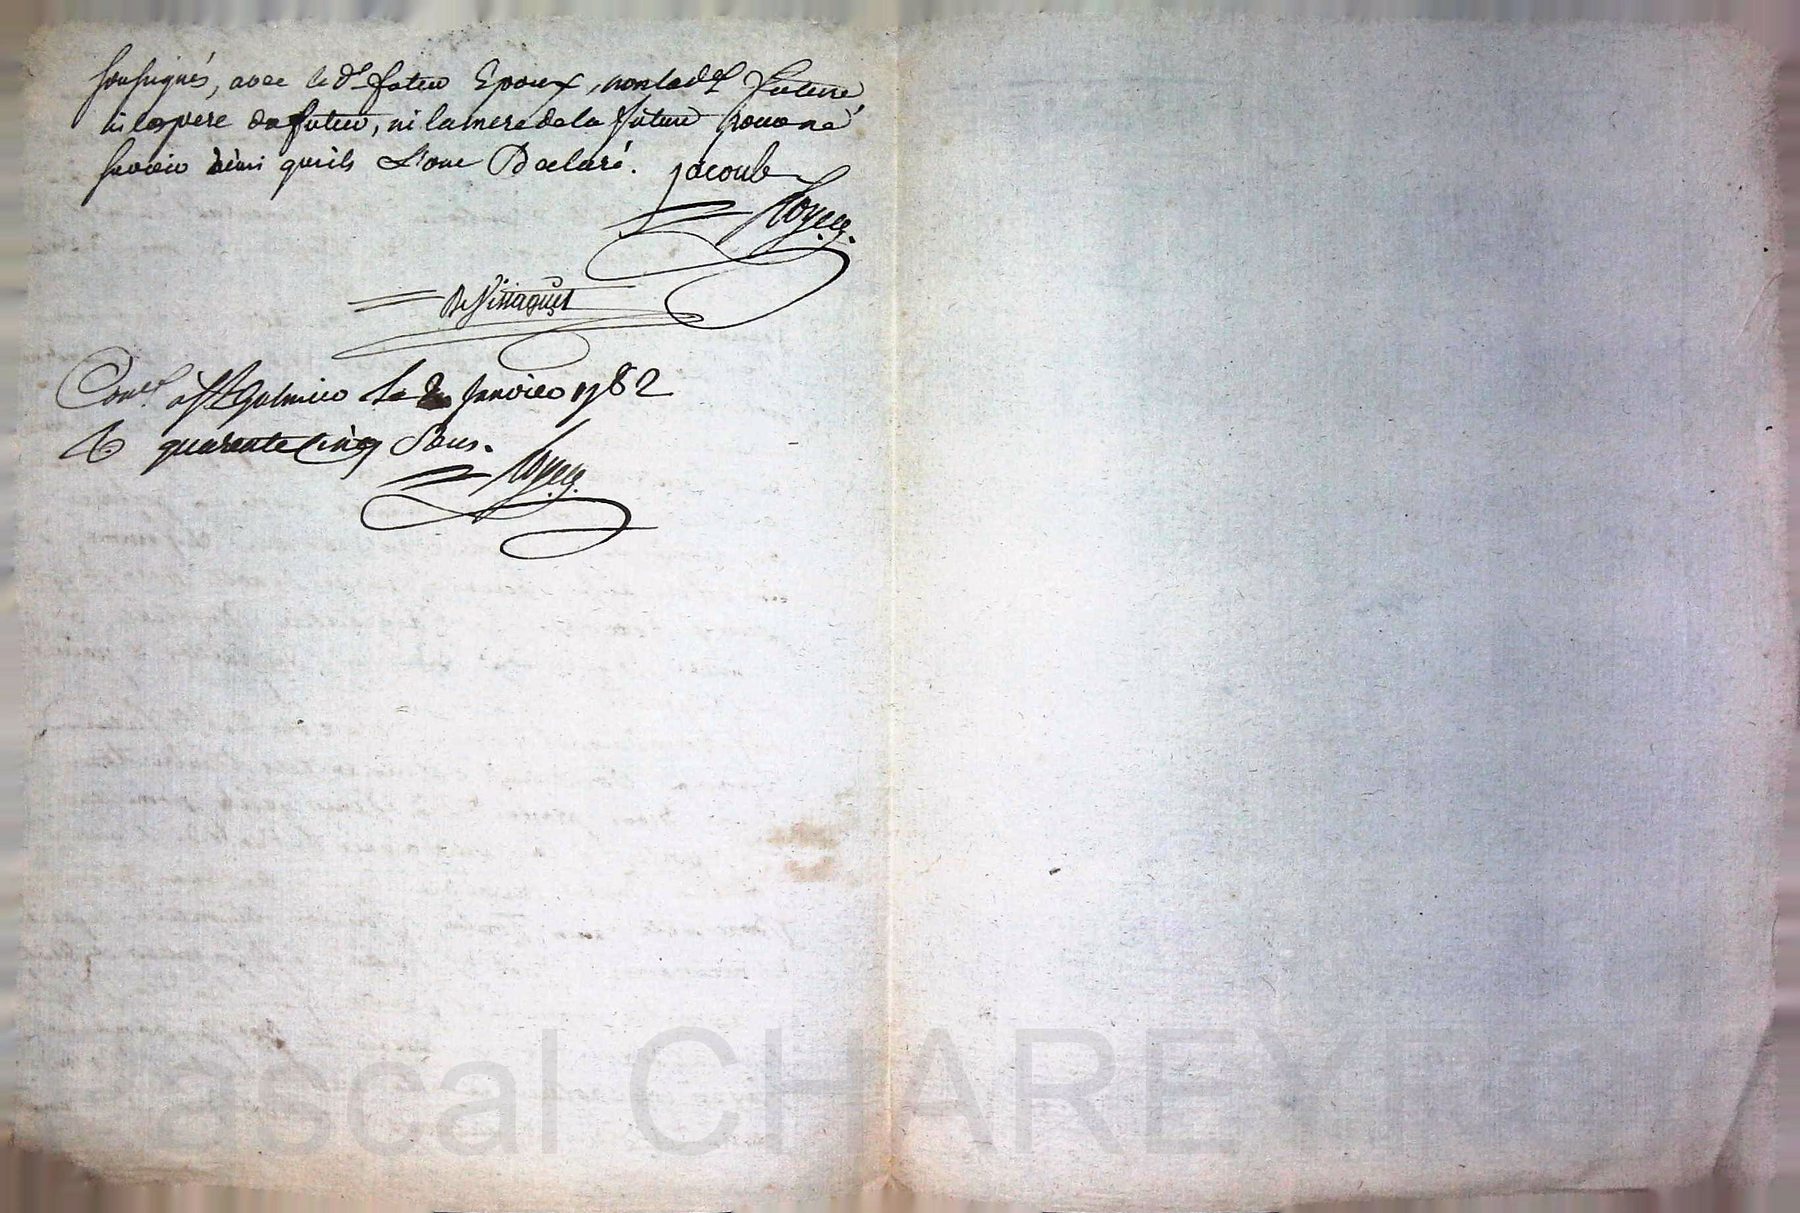 soussignés, avec le dt. futeur Epoux, non lad.te Future
ni les pere du futeur, ni la mere de la future pour ne
savoir ainsi qu'ils L'ont Declaré. jacoub
Royer
De Vinaguet
Con.lé à St Galmier le 2 Janvier 1782
R quarante cinq Sous.
Royer
ascal CHAREYR